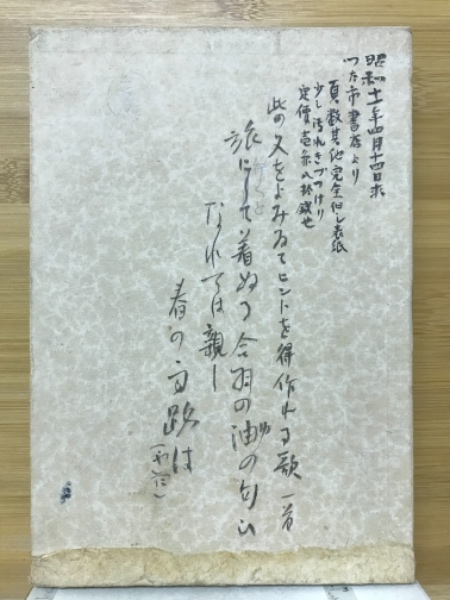 昭和十一年四月十四日求
つた市書店より
頁数其他完全但し表紙
少し汚れきづつけり
定價壱円八拾銭也
此の文をよみゐてヒントを得作れる歌一首
旅にして着ぬる合羽の油の匂ひ
なれては親し
春の雨路は